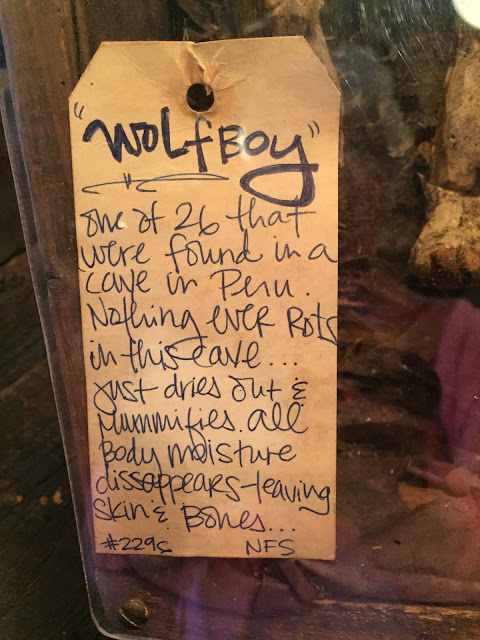 "WolfBoy"
one of 26 that
were found in a
cave in Peru.
Nothing ever Rots
in this cave...
just dries out &
Mummifies. all
Body moisture
dissappears-leaving
skin & Bones...
#229c NFS